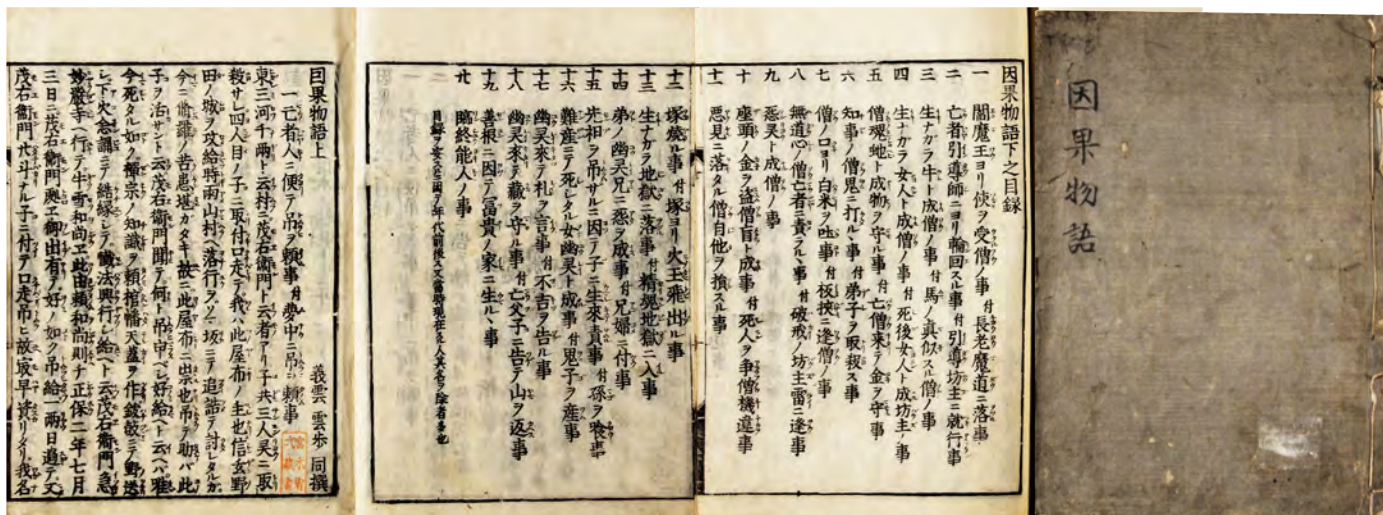 因果物語
因果物語下之目録
一 閻魔王ヨリ使ヲ受僧ノ事 付 長老魔道ニ落事
二 亡者引導師ニヨリ輪回スル事 付 引導坊主ニ就行事
三 生ナガラ牛ト成僧ノ事 付 馬ノ真似スル僧ノ事
四 生ナガラ女人ト成僧ノ事 付 死後女人ト成坊主ノ事
五 僧魂蛇ト成物ヲ守ル事 付 亡僧来テ金ヲ守事
六 知事ノ僧鬼ニ打ルヽ事 付 弟子ヲ取殺ス事
七 僧ノ口ヨリ白米ヲ吐事 付 板挟ニ逢僧ノ事
八 無道心ノ僧亡者ニ責ラルヽ事 付 破戒ノ坊主雷ニ逢事
九 怨灵ト成僧ノ事
十 座頭ノ金ヲ盗僧盲ト成事 付 死人ヲ争僧機違事
十一 悪見ニ落タル僧自他ヲ損スル事
十二 塚焼ル事 付 塚ヨリ火玉飛出ル事
十三 生ナガラ地獄ニ落事 付 精魂地獄ニ入事
十四 弟ノ幽灵兄ニ怨ヲ成事 付 兄婦ニ付事
十五 先祖ヲ吊サルニ因テ子ニ生來責事 付 孫ヲ喰事
十六 難産ニテ死シタル女幽灵ト成事 付 鬼子ヲ産事
十七 幽灵來テ礼ヲ言事 付 不吉ヲ告ル事
十八 幽灵來テ蔵ヲ守ル事 付 亡父子ニ告テ山ヲ返事
十九 善根ニ因テ冨貴ノ家ニ生ルヽ事
廿 臨終能人ノ事
因果物語上
義雲 雲歩 同撰
一 亡者人ニ便テ吊ヲ頼事 付 夢中ニ吊ヲ頼事
東三河千両ト云村ニ茂右衛門ト云者アリ子共三人灵ニ取
殺サレ四人目ノ子ニ取付口走テ我ハ此屋布ノ主也信玄野
田ノ城ヲ攻給時両山村ヘ落行ヲ一坂ニテ追詰テ討レタルガ
今ニ脩羅ノ苦患堪ガタキ故ニ此屋布ニ祟也吊テ助バ此
子ヲ活サント云茂右衛門聞テ何ト吊申ベシ好給ヘト云ヘバ唯
今死タル如ク禅宗ノ知識ヲ頼棺幡天蓋ヲ作鐃鼓ニテ野送
シ下火念誦ニテ結縁シテ懺法興行シ給ヘト云茂右衛門急
妙厳寺ヘ行テ牛雪和尚エ此由頼和尚則チ正保二年七月
三日ニ茂右衛門処エ御出有テ好ノ如ク吊給一両日過テ又
茂右衛門廿斗ナル子ニ付テ口走吊ヒ故最早資リタリ我名